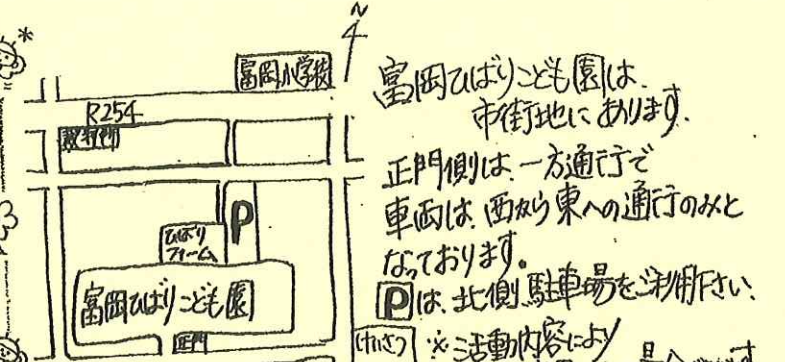 N
富岡小学校
R254
裁判所
P
ひばり
ファーム
富岡ひばりこども園
正門
けいさつ
富岡ひばりこども園は、
市街地にあります。
正門側は、一方通行で
車両は、西から東への通行のみと
なっております。
Pは、北側駐車場をご利用下さい。
※活動内容により